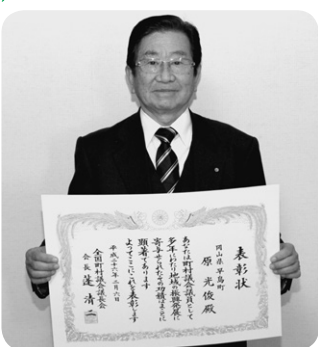 表彰状
岡山県 早島町
原 光俊殿
あなたは町村議会議員として
多年にわたり地域の振興発展に
寄与せられたその功績はまことに
顕著であります
よってここにこれを表彰します
平成二十六年二月六日
全国町村議会議長会
会長 蓬 清二